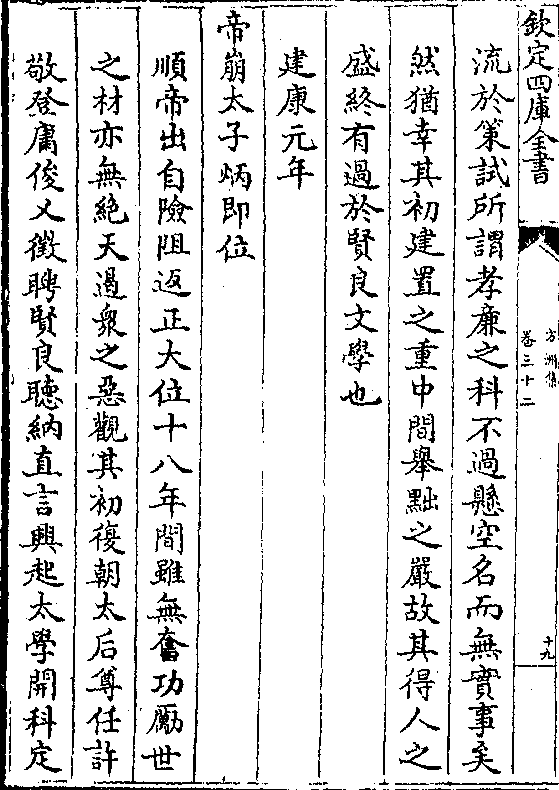 欽定四庫全書
方洲集
卷三十二
十九
流於策試所謂孝廉之科不過懸空名而無實事矣
然猶幸其初建置之重中間舉黜之嚴故其得人之
盛終有過於賢良文學也
建康元年
帝崩太子炳即位
順帝出自險阻返正大位十八年間雖無奮功勵世
之材亦無絶天遏衆之惡觀其初復朝太后尊任許
敬登庸俊乂徵聘賢良聽納直言興起太學開科定